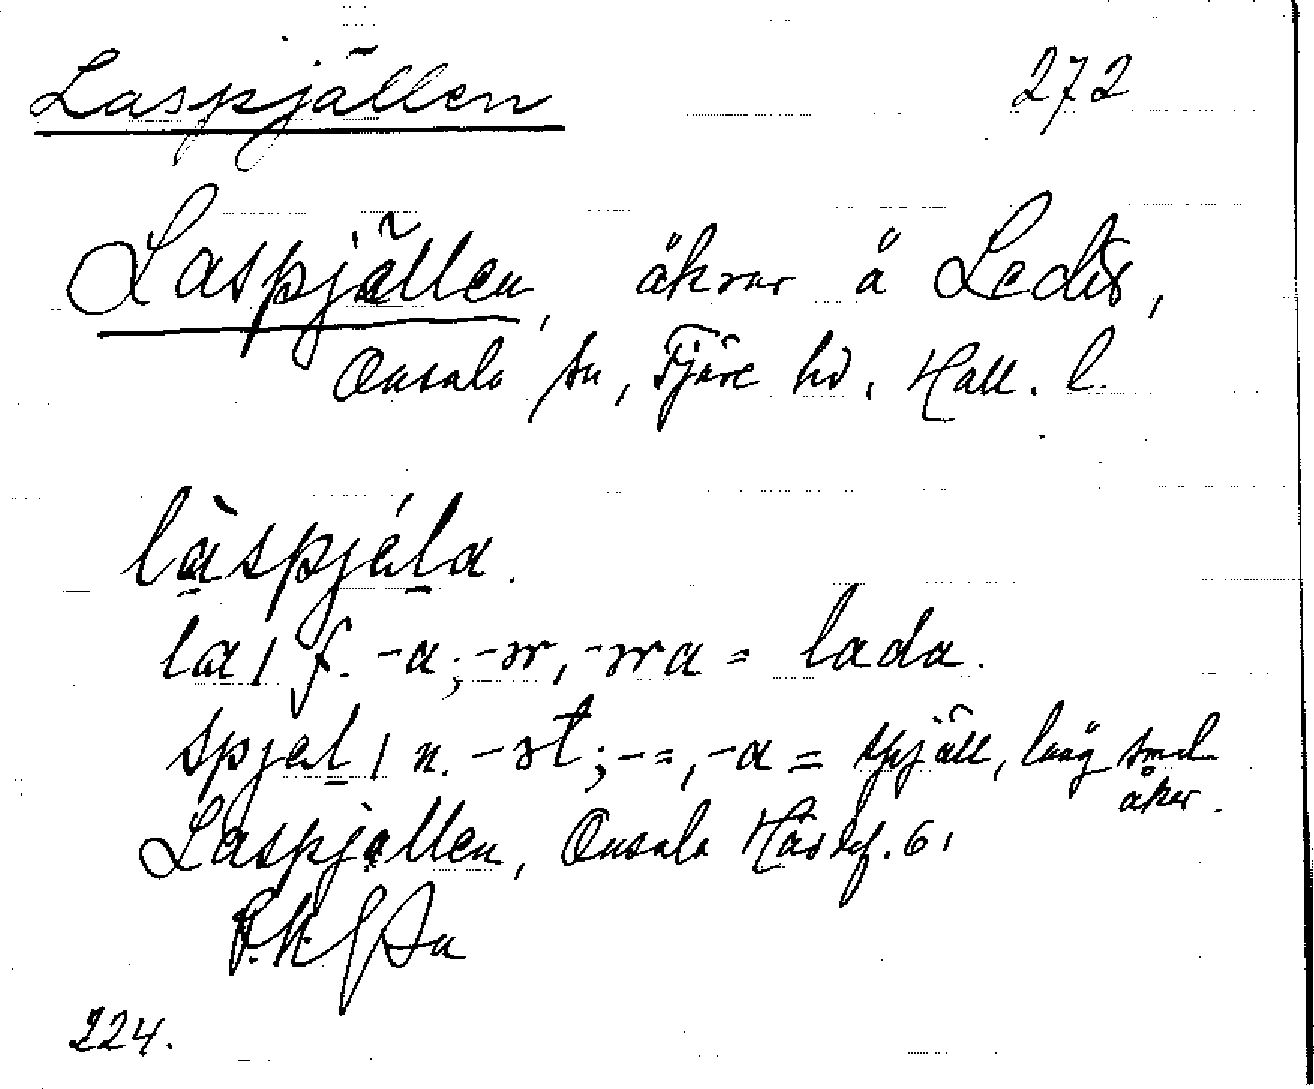 Laspjällen 272
Laspjällen, åkrar å Ledis,
Onsala sn, Fjäre hd, Hall. l.
làspjéla.
la/ f. -a; -ər, -əra = lada.
spjel/ n. -ət; -=, -a = spjäll, lång smal
åker.
Laspjällen, Onsala 6.
224.